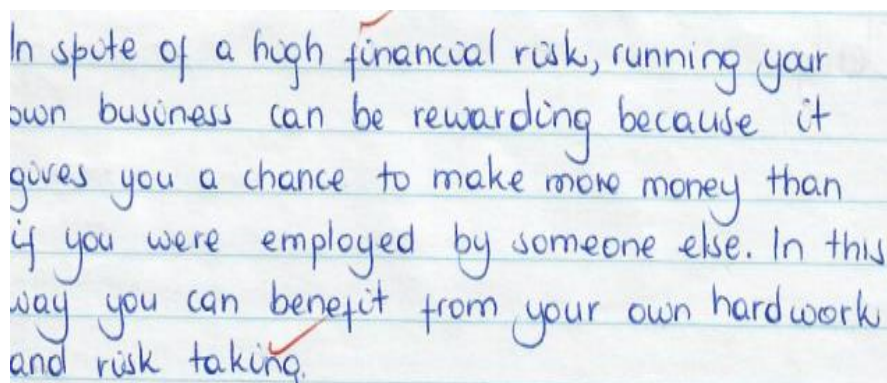 In spite of a high financial risk, running your
own business can be rewarding because it
gives you a chance to make more money than
if you were employed by someone else. In this
way you can benefit from your own hard work
and risk taking.